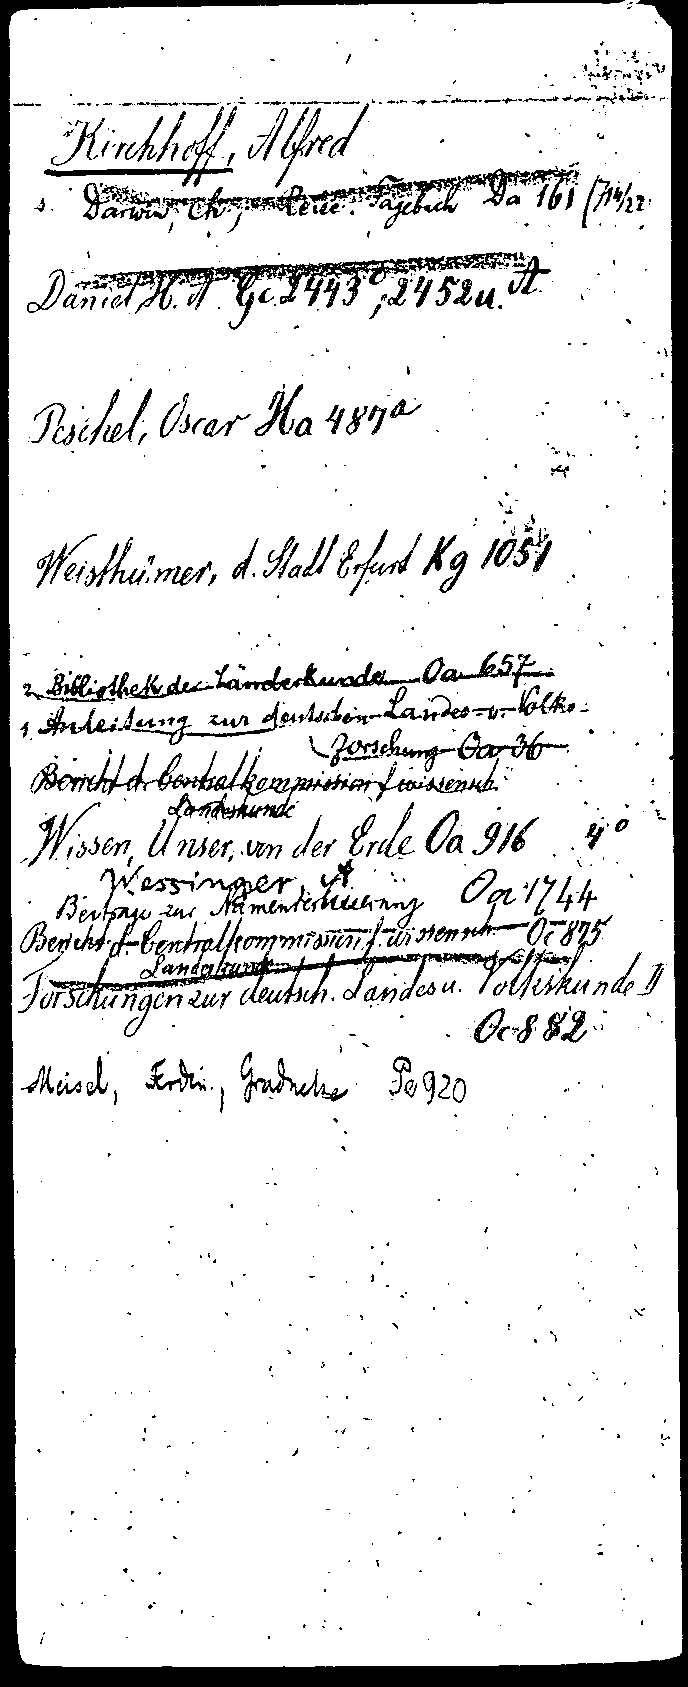 Kirchhoff, Alfred
Darwin, Ch., Reise. Tagebuch Da 161
Daniel, H. A. Gc 2443°, 2452 u. A
Peschel, Oscar Ha 487a
Weisthümer, d. Stadt Erfurt Kg 1051
2 Bibliothek der Länderkunde Oa 657
1 Anleitung zur deutschen Landes- u. Volks-
forschung Oa 36
Bericht d. Centralkommission f. wissensch.
Landeskunde
Wissen, Unser, von der Erde Oa 916 4°
Wessinger, A
Beitrage zur Namenverbesserung Oa 1744
Bericht d. Centralkommission f. wissensch. Oc 875
Landeskunde
Forschungen zur deutsch. Landes u. Volkskunde II
Oc 882
Meisel, Ferdin., Pe 920